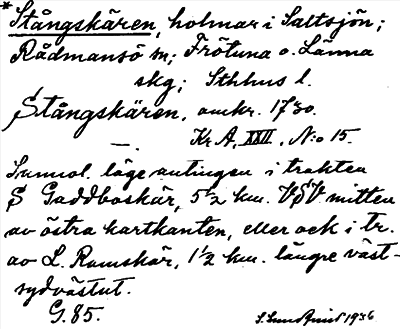 *Stångskären, holmar i Saltsjön;
Rådmansö sn; Frötuna o. Länna
skg; Sthlms l.
Stångskären, omkr. 1730.
— . Kr. A, XXII, N:o 15.
Sannol. läge antingen i trakten
S Gaddboskär, 5 1/2 km. VSV mitten
av östra kartkanten, eller ock i tr.
av L. Ramskär, 1 1/2 km. längre väst-
sydvästut.
G. 85.
S. Sundquist 1936